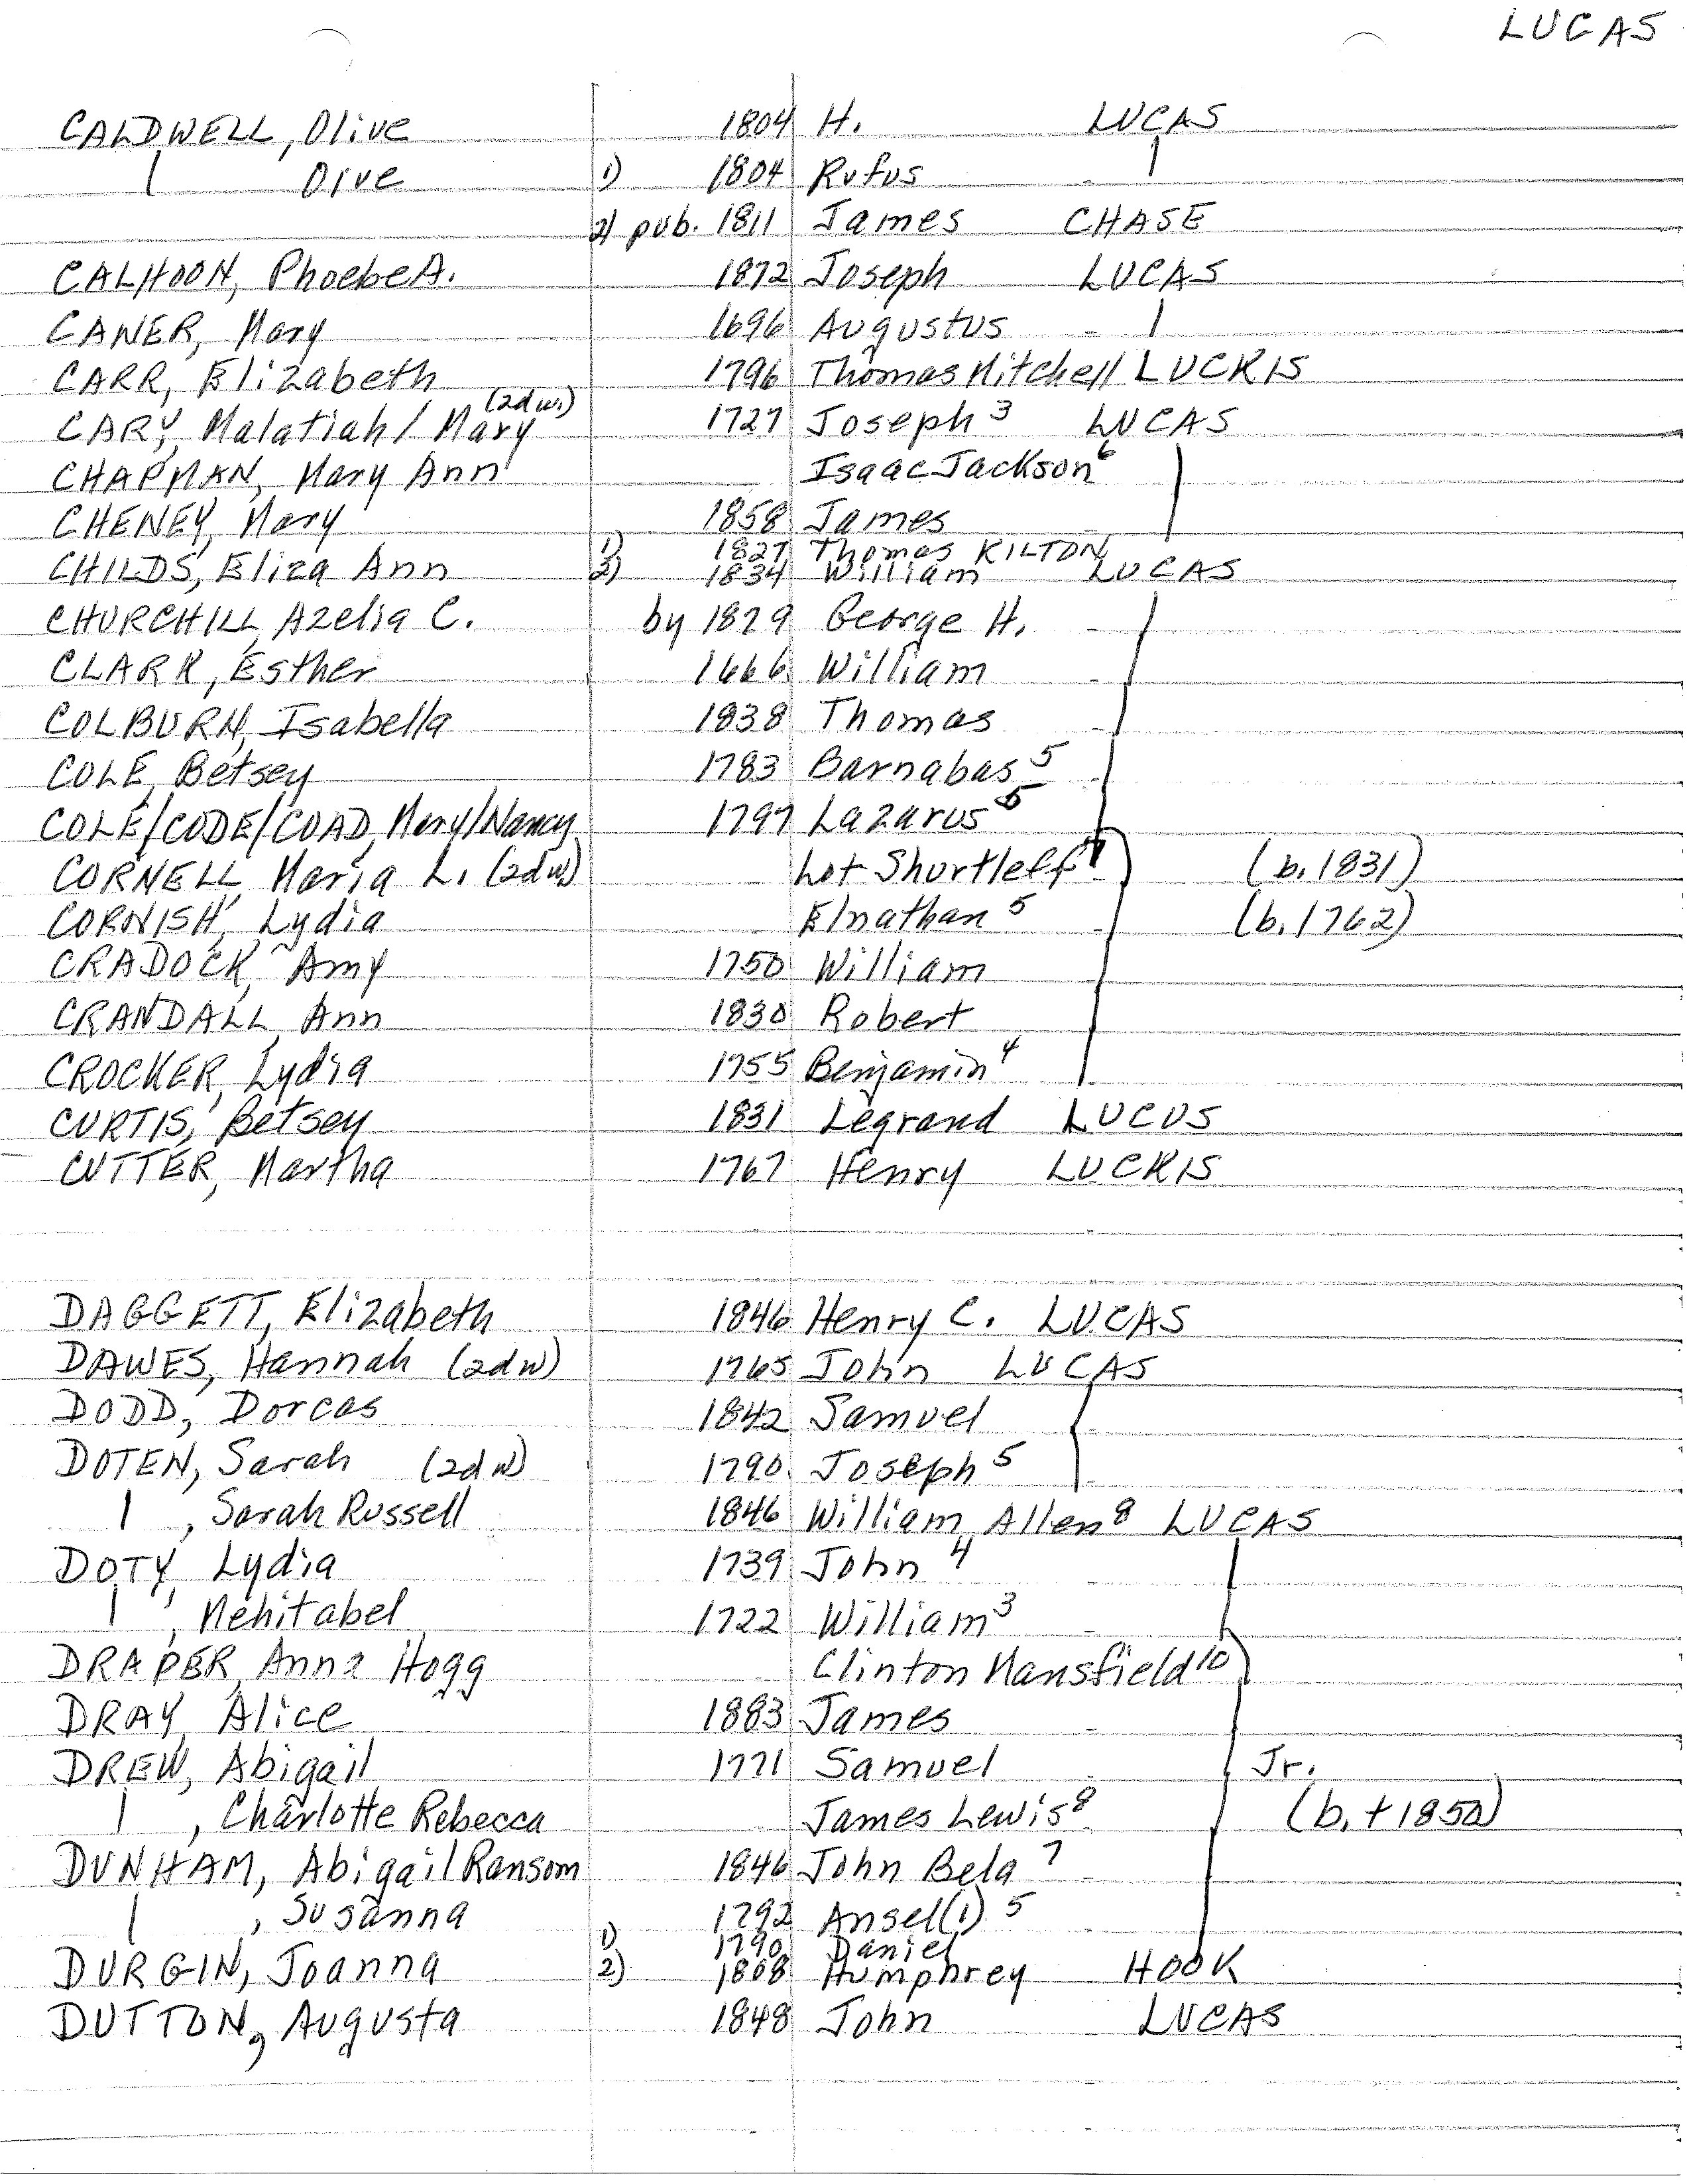 LUCAS
CALDWELL, Olive 1804 H. LUCAS
| Olve 1) 1804 Rufus |
2) pub. 1811 James CHASE
CALHOON, Phoebe A. 1872 Joseph LUCAS
CANER, Mary 1696 Augustus |
CARR, Elizabeth 1796 Thomas Mitchell LUCKIS
CARY, Malatiah/Mary (2d w.) 1727 Joseph³ LUCAS
CHAPMAN, Mary Ann Isaac Jackson⁶
CHENEY, Mary 1858 James
CHILDS, Eliza Ann 1) 1827 Thomas KILTON
2) 1834 William LUCAS
CHURCHILL, Azelia C. by 1829 George H.
CLARK, Esther 1666 William
COLBURN, Isabella 1838 Thomas
COLE, Betsey 1783 Barnabas⁵
COLE/CODE/COAD, Mary/Nancy 1797 Lazarus⁵
CORNELL, Maria L. (2d w) Lot Shurtleff (b. 1831)
CORNISH, Lydia Elnathan⁵ (b. 1762)
CRADOCK, Amy 1750 William
CRANDALL, Ann 1830 Robert
CROCKER, Lydia 1755 Benjamin⁴
CURTIS, Betsey 1831 Legrand LUCUS
CUTTER, Martha 1767 Henry LUCKIS
DAGGETT, Elizabeth 1846 Henry C. LUCAS
DAWES, Hannah (2d w) 1765 John LUCAS
DODD, Dorcas 1842 Samuel
DOTEN, Sarah (2d w) 1790 Joseph⁵
| , Sarah Russell 1846 William Allen⁸ LUCAS
DOTY, Lydia 1739 John⁴
| , Mehitabel 1722 William³
DRAPER, Anna Hogg Clinton Mansfield¹⁰
DRAY, Alice 1883 James
DREW, Abigail 1771 Samuel Jr.
| , Charlotte Rebecca James Lewis⁸ (b. + 1850)
DUNHAM, Abigail Ransom 1846 John Bela⁷
| , Susanna 1792 Ansel(1)⁵
DURGIN, Joanna 1) 1790 Daniel
2) 1808 Humphrey HOOK
DUTTON, Augusta 1848 John LUCAS